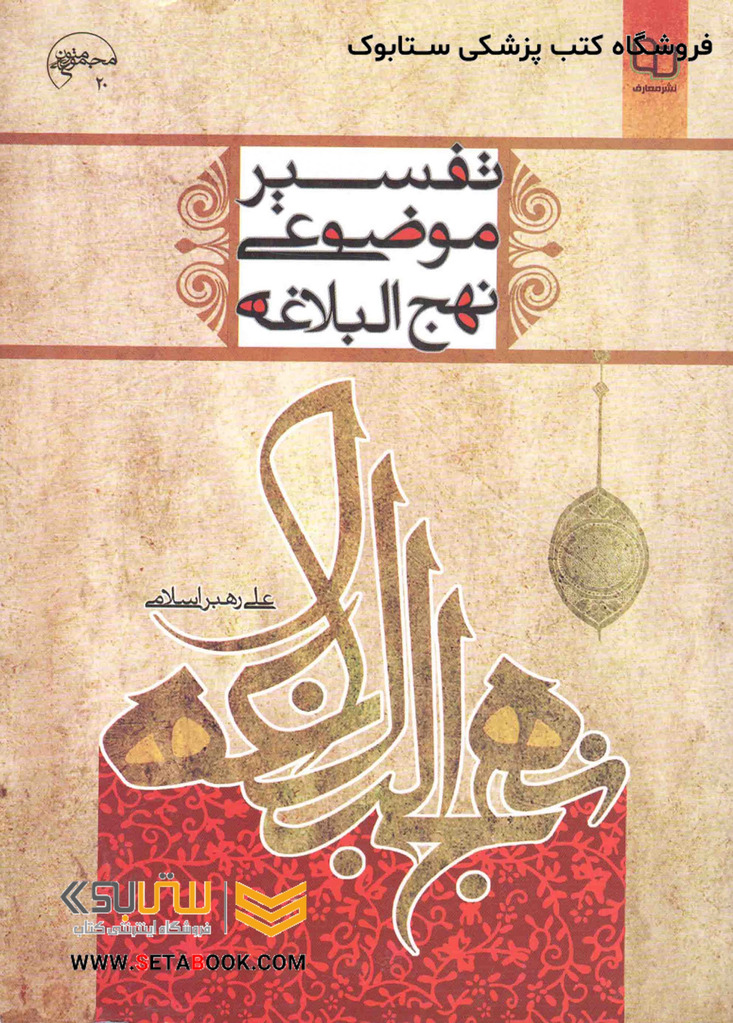 فروشگاه کتب پزشکی ستابوک
نشر معارف
مجموعه متون
۲۰
تفسیر
موضوعی
نهج البلاغه
علی رهبر اسلامی
نهج البلاغه
ستابوک
فروشگاه اینترنتی کتاب
WWW.SETABOOK.COM